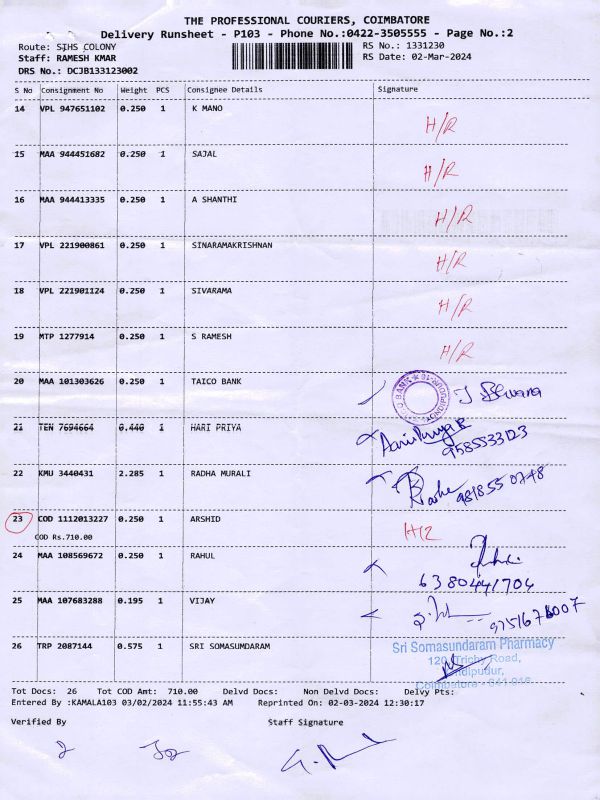 THE PROFESSIONAL COURIERS, COIMBATORE
Delivery Runsheet - P103 - Phone No.:0422-3505555 - Page No.:2
Route: SIHS COLONY RS No.: 1331230
Staff: RAMESH KMAR RS Date: 02-Mar-2024
DRS No.: DCJB133123002
S No Consignment No Weight PCS Consignee Details Signature
14 VPL 947651102 0.250 1 K MANO H/R
15 MAA 944451682 0.250 1 SAJAL H/R
16 MAA 944413335 0.250 1 A SHANTHI H/R
17 VPL 221900861 0.250 1 SINARAMAKRISHNAN H/R
18 VPL 221901124 0.250 1 SIVARAMA H/R
19 MTP 1277914 0.250 1 S RAMESH H/R
20 MAA 101303626 0.250 1 TAICO BANK
21 TEN 7694664 0.440 1 HARI PRIYA
9585533123
22 KMU 3440431 2.285 1 RADHA MURALI Radha 9818550748
23 COD 1112013227 0.250 1 ARSHID
COD Rs.710.00
24 MAA 108569672 0.250 1 RAHUL
6380441704
25 MAA 107683288 0.195 1 VIJAY 9751676007
26 TRP 2087144 0.575 1 SRI SOMASUMDARAM Sri Somasundaram Pharmacy
120, Trichy Road,
Coimbatore - 641 016.
Tot Docs: 26 Tot COD Amt: 710.00 Delvd Docs: Non Delvd Docs: Delvy Pts:
Entered By :KAMALA103 03/02/2024 11:55:43 AM Reprinted On: 02-03-2024 12:30:17
Verified By Staff Signature